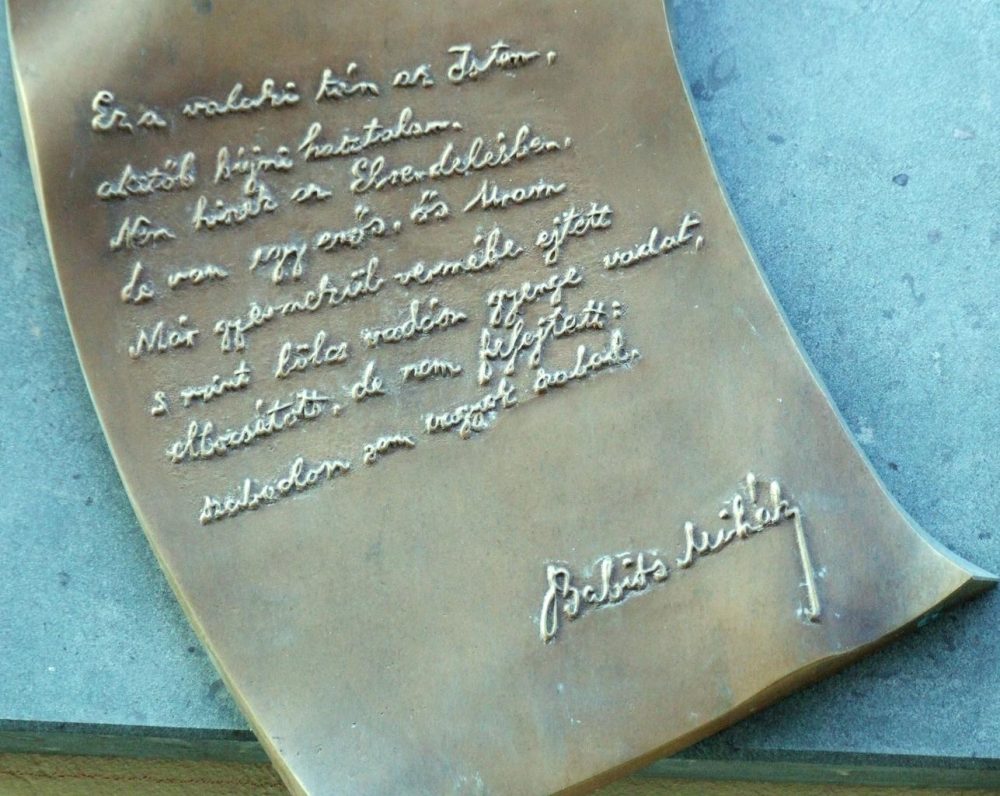 Ez a valaki tán az Isten,
akitől bújni hasztalan.
Nem hinék az Elrendelésben,
de van egy erős, ős Uram
Már gyermekül vermébe ejtett
s mint bölcs vadász gyenge vadat,
elbocsátott, de nem felejtett:
szabadon sem vagyok szabad.
Babits Mihály